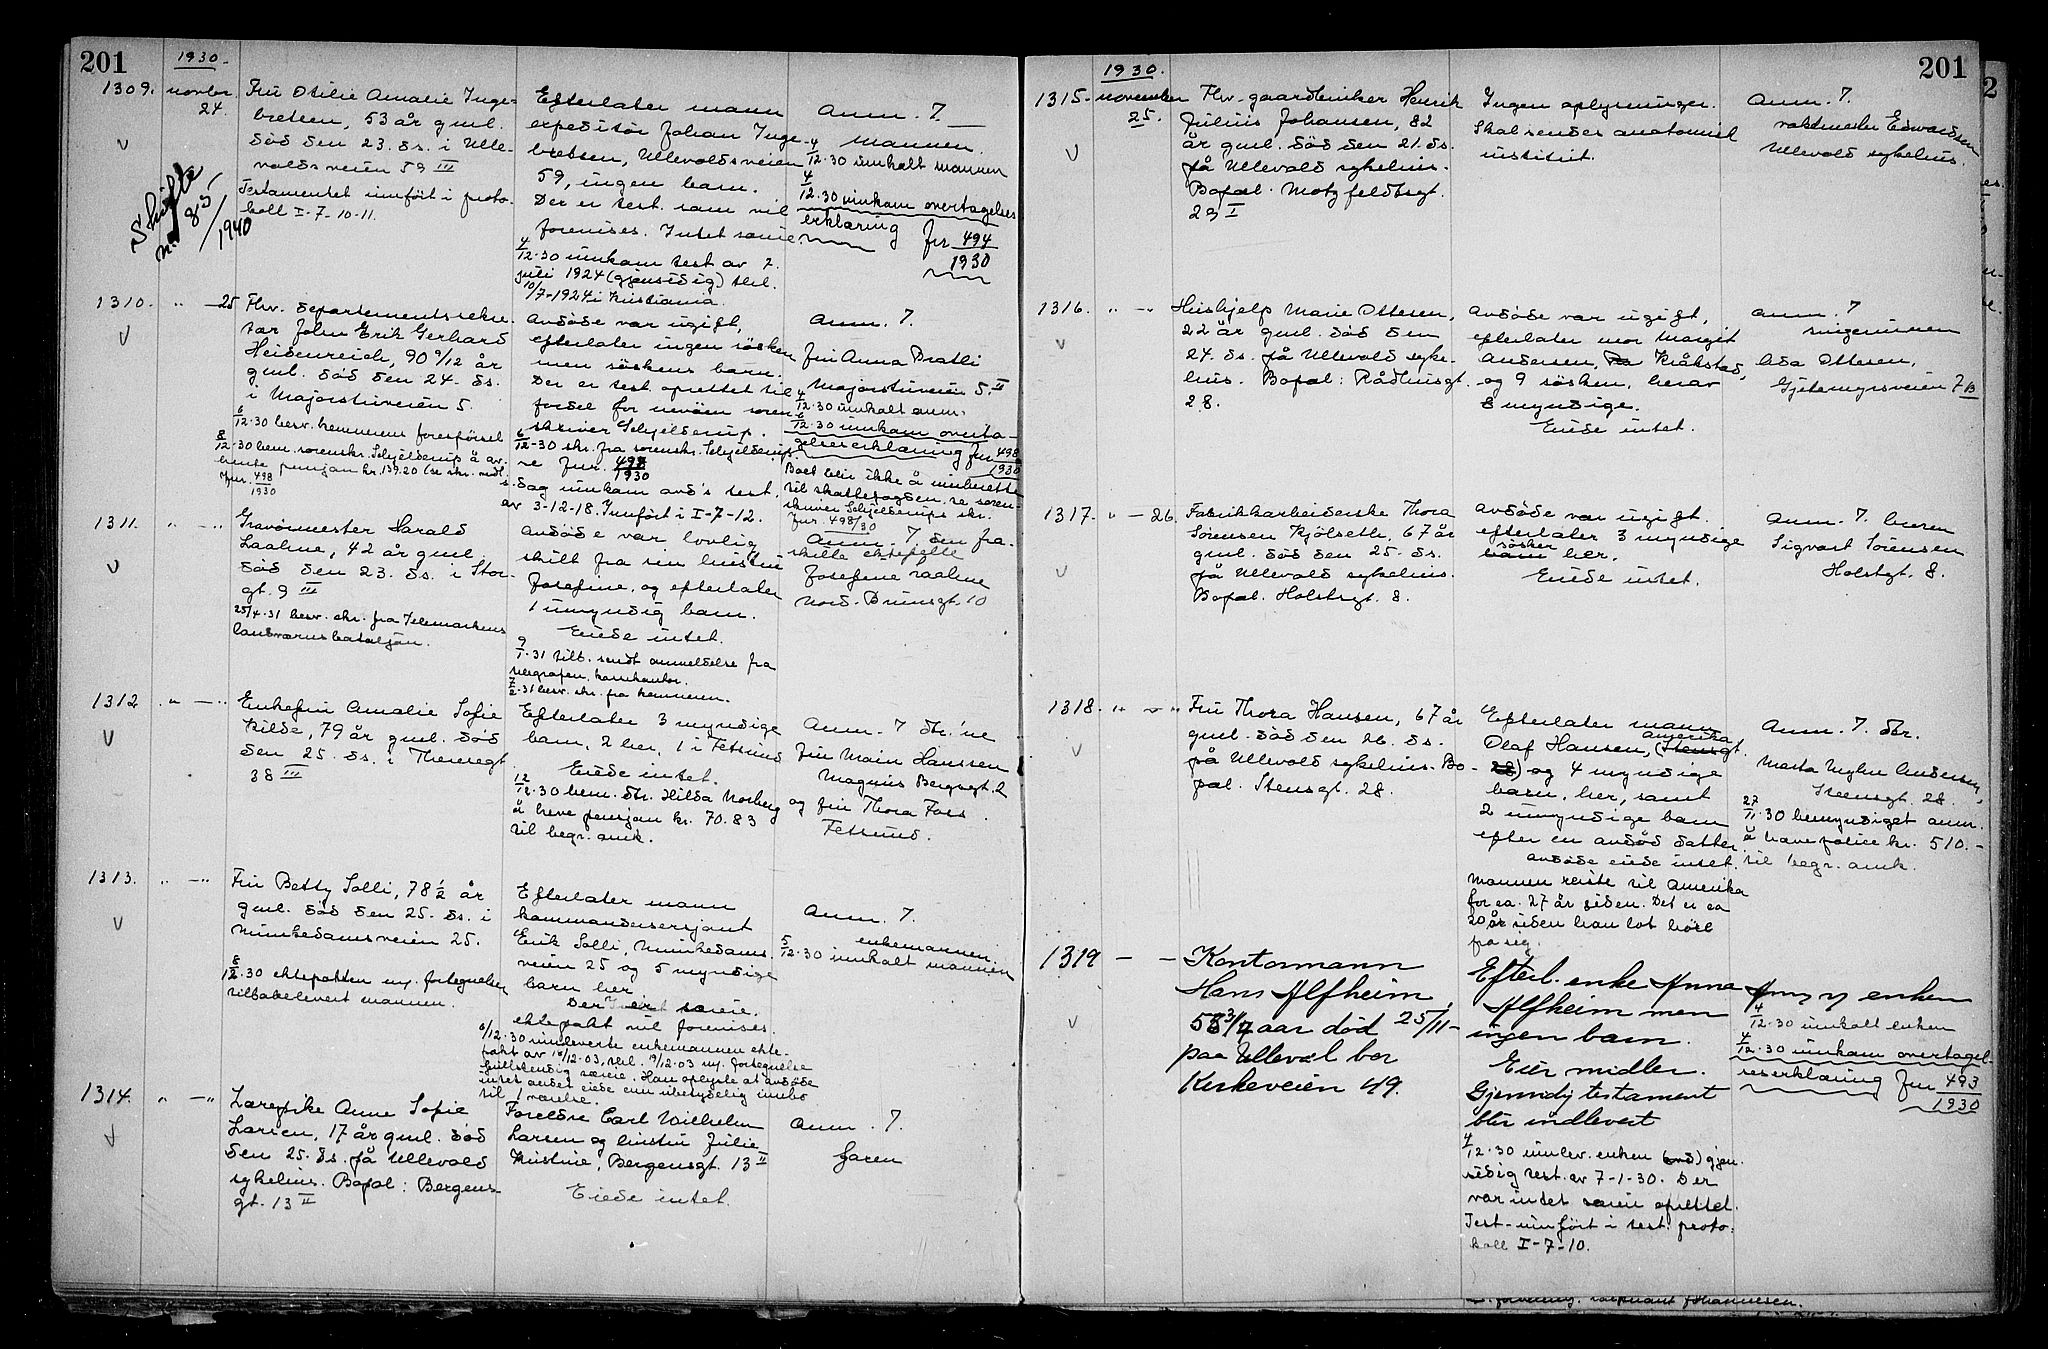 201
1930.
1309. novbr. 24.
Fru Otilie Amalie Inge-
bretsen, 53 år gml.
død den 23. ds. i Ulle-
voldsveien 59 III
Testamentet innført i proto-
koll I-7-10-11.
Skifte
nr. 85
/1940
Efterlater mann
expeditør Johan Inge-
bretsen, Ullevoldsveien
59, ingen barn.
Der er test. som vil
forevises. Intet særeie.
4/12.30 innkom test av 2.
juli 1924 (gjensidig) tktl.
10/7-1924 i Kristiania.
Anm. 7.
Mannen.
4/12.30 innkalt mannen
4/12.30 innkom overtagelses
erklæring Jnr 494
1930
1310. " - 25
Fhv. departementsekre-
tær John Erik Gerhard
Heidenreich, 90 9/12 år
gml. død den 24. ds.
i Majorstuveien 5.
6/12.30 besv. kemnerens forespørsel
8/12.30 bem. sorenskr. Schjelderup å av.
hente pensjon kr. 139.20 (se skr. vedl.
Jnr. 498
1930
Avdøde var ugift,
efterlater ingen søsken
men søskens barn.
Der er test. oprettet til
fordel for nevøen soren-
skriver Schjelderup.
6/12-30 skr. fra sorenskr. Schjelderup
se Jnr. 498
1930
s. dag innkom avd's test.
av 3-12-18. Innført i I-7-12.
Anm. 7.
fru Anna Bratli
Majorstuveien 5. II
4/12.30 innkalt anm.
6/12.30 innkom overta-
gelseserklæring Jnr 498
1930
Boet blir ikke å innberette
til skattefogden, se soren-
skriver Schjelderups skr.
Jnr. 498/30
1311. " - "
Gravørmester Harald
Laalme, 42 år gml.
død den 23. ds. i Stor-
gt. 9 III
25/4.31 besv. skr. fra Telemarkens
landvernsbataljon.
Avdøde var lovlig
skilt fra sin hustru
Josefine, og efterlater
1 umyndig barn.
Eiede intet.
9/1.31 tilb. sendt anmeldelse fra
7/2.31 besv. skr. fra kemneren.
Anm. 7. den fra-
skilte ektefelle
Josefine Laalme
Nord. Brunsgt. 10
1312 . " - "
Enkefru Amalie Sofie
Kilde, 79 år gml. død
den 25. ds. i Theresegt
38 III
Efterlater 3 myndige
barn, 2 her, 1 i Fetsund
Eiede intet.
12/12.30 bem. dtr. Hilda Norberg
å heve pensjon kr. 70.83
til begr. omk.
Anm. 7 dtr.'ne
fru Main Hanssen
Magnus Bergsgt. 2
og fru Thora Foss.
Fetsund.
1313. " - "
Fru Betty Solli, 78 1/2 år
gml. død den 25. ds. i
Munkedamsveien 25.
8/12.30 ektepakten m/. fortegnelse
tilbakelevert mannen.
Efterlater mann
kommandersersjant
Erik Solli, Munkedams-
veien 25 og 5 myndige
barn her
Der er særeie.
ektepakt vil forevises.
6/12.30 innleverte enkemannen ekte-
pakt av 16/12.03, tktl. 19/12.03 m/. fortegnelse
fullstendig særeie. Han oplyste at avdøde
intet andet eiede enn ubetydelig innbo
til 1 værelse.
Anm. 7.
enkemannen.
5/12.30 innkalt mannen
1314. " - "
Lærepike Anne Sofie
Larsen, 17 år gml. død
den 25. ds. på Ullevold
sykehus. Bopæl: Bergens-
gt. 13 II
Foreldre Carl Wilhelm
Larsen og hustru Julie
Kristine, Bergensgt. 13 II
Eiede intet.
Anm. 7.
Faren
1930.
201
1315. november 25.
Fhv. gaardbruker Henrik
Julius Johansen, 82
år gml. død den 21. ds.
på Ullevold sykehus.
Bopæl. Motzfeldtsgt.
23 I
Ingen oplysninger.
Skal sendes anatomisk
institut.
Anm. 7.
vaktmester Edwardsen
Ullevold sykehus.
1316. " - "
Hushjelp Marie Ottesen,
22 år gml. død den
24. ds. på Ullevold syke-
hus. Bopæl: Rådhusgt.
28.
Avdøde var ugift,
efterlater mor Margit
Andersen, Kråkstad,
og 9 søsken, herav
8 myndige.
Eiede intet.
Anm. 7
svigerinnen
Lisa Ottesen,
Gjetemyrsveien 7 B
1317. " - 26.
Fabrikkarbeiderske Thora
Sørensen Kjølseth, 67 år
gml. død den 25. ds.
på Ullevold sykehus.
Bopæl. Holstsgt. 8.
Avdøde var ugift.
efterlater 3 myndige
søsken
barn her.
Eiede intet.
Anm. 7. broren
Sigvart Sørensen
Holstgt. 8.
1318. " - "
Fru Thora Hansen, 67 år
gml. død den 26. ds.
på Ullevold sykehus. Bo-
pæl. Stensgt. 28.
Efterlater mann
Amerika
Olaf Hansen, (Stensgt.
28) og 4 myndige
barn, her, samt
2 umyndige barn
efter en avdød datter.
Avdøde eiede intet.
Mannen reiste til Amerika
for ca. 27 år siden. Det er ca
20 år siden han lot høre
fra sig.
Anm. 7. dtr.
Marta Myhre Andersen,
Steensgt. 28.
27/11.30 bemyndiget anm.
å heve police kr. 510.-
til begr. omk.
1319 - -
Kontormann
Hans Alfheim
58 3/4 aar død 25/11-
paa Ullevål bor
Kirkeveien 49.
Efterl. enke Anna
Alfheim men
ingen barn.
Eier midler.
Gjensidig testament
blir indlevert
4/12.30 innlev. enken gjen-
sidig test. av 7-1-30. Der
var intet særeie oprettet.
Test. innført i test. proto-
koll I-7-10.
Anm 7 enken
4/12.30 innkalt enken
4/12.30 innkom overtagel-
seserklæring Jnr 493
1930